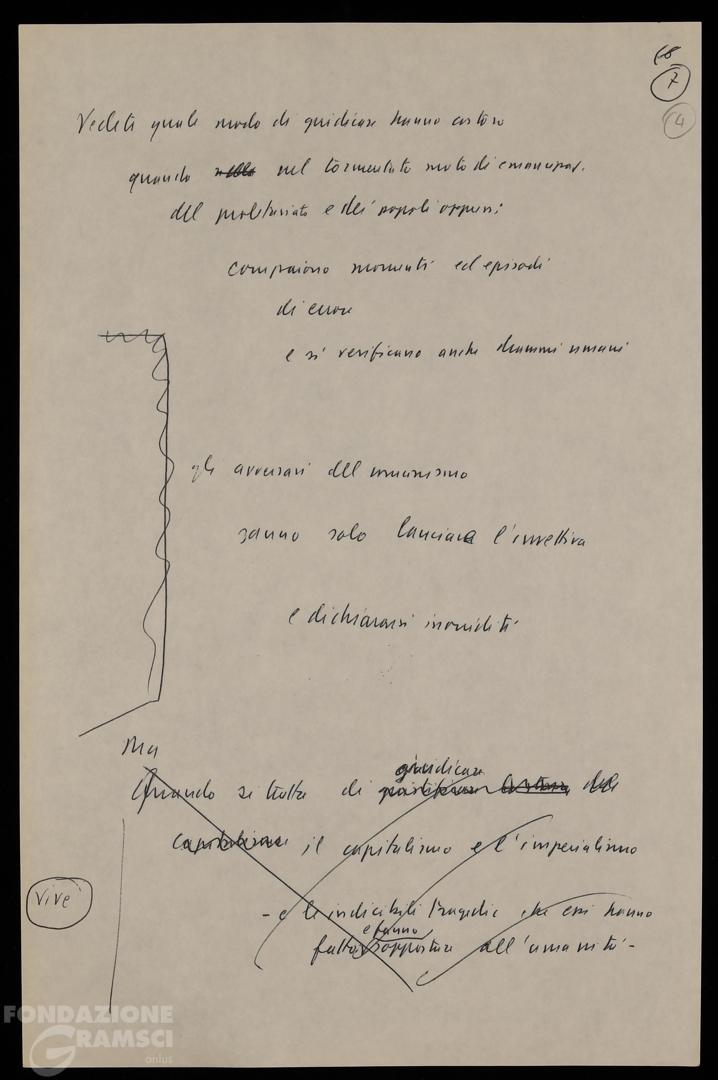 68
7
4
Vedete quale modo di giudicare hanno costoro
quando nello nel tormentato moto di emancipaz.
del proletariato e dei popoli oppressi
compaiono momenti ed episodi
di errore
e si verificano anche drammi umani
gli avversari del
sanno solo lanciare l'invettiva
e dichiararsi inorriditi
Ma
giudicare
Quando si tratta di del
capitalismo il capitalismo e l'imperialismo
vive
- e le indicibili tragedie che essi hanno
e fanno
fatto sopportare all'umanità -
FONDAZIONE
GRAMSCI
onlus